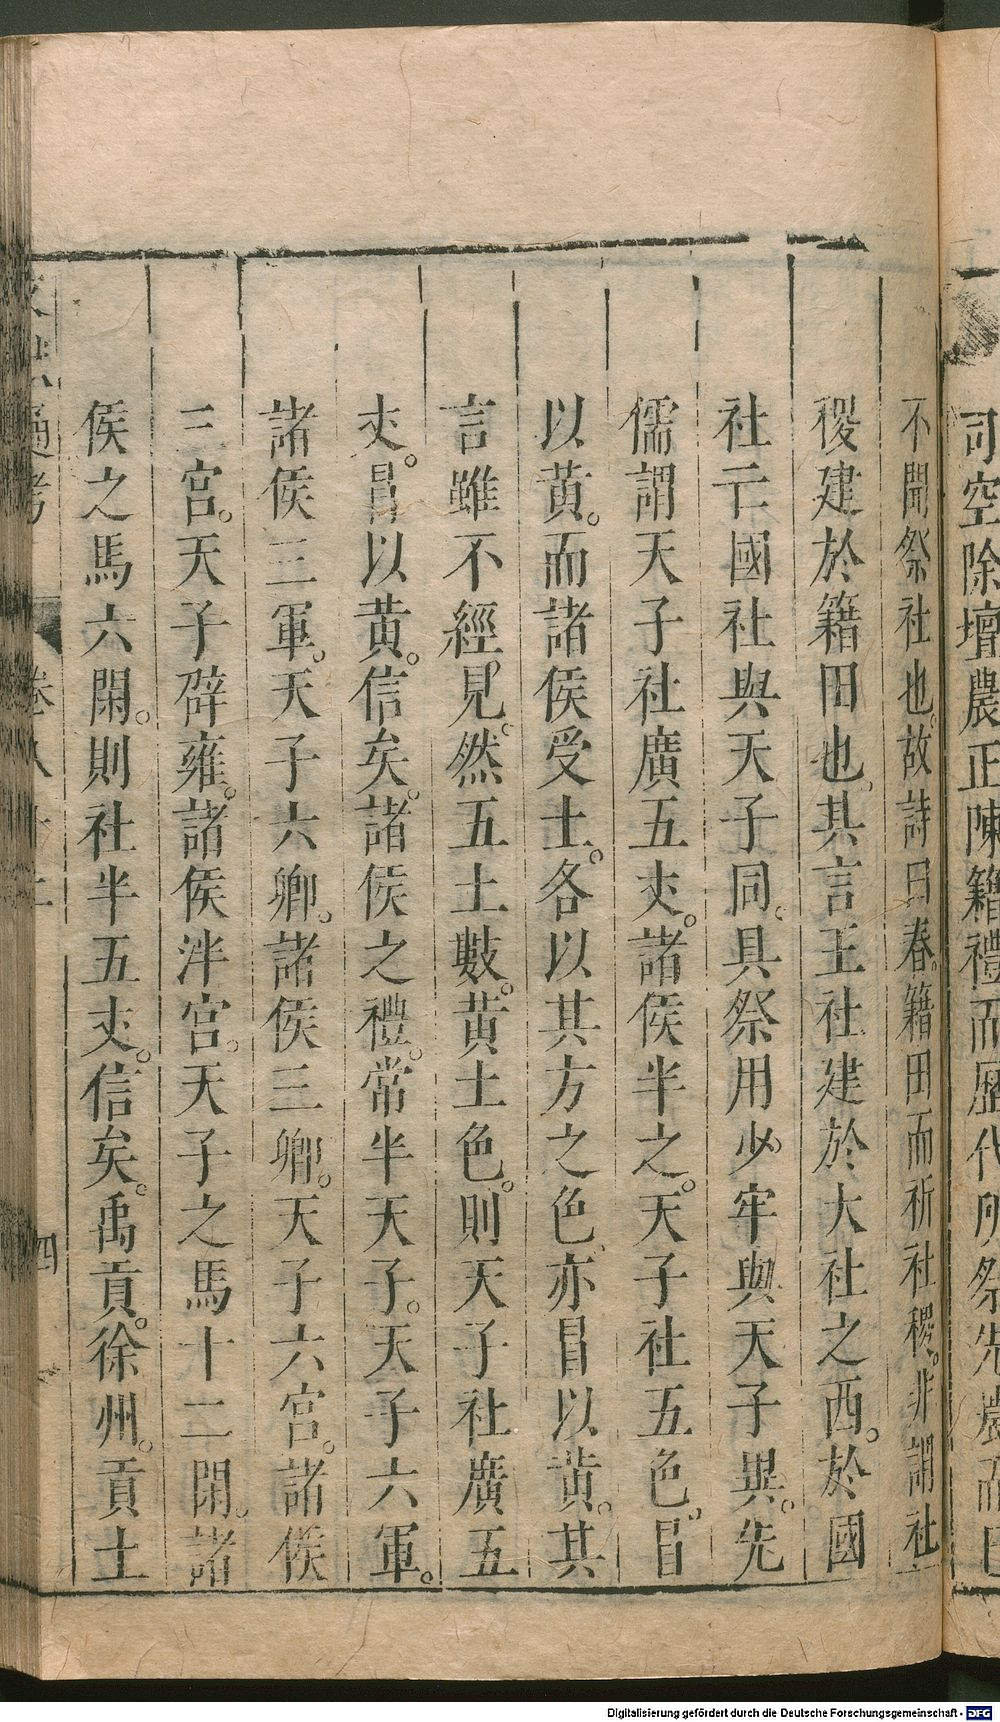 司空除壇農正陳籍禮而歷代所祭先農而已
不聞祭社也。故詩曰春。籍田而祈社稷。非謂社
稷建於籍田也。其言王社建於大社之西。於國
社亡國社與天子同。其祭用少牢與天子異。先
儒謂天子社廣五丈。諸侯半之。天子社五色。冒
以黃。而諸侯受土。各以其方之色。亦冒以黃。其
言雖不經見。然五土數。黃土色。則天子社廣五
丈。冒以黃。信矣。諸侯之禮。常半天子。天子六軍。
諸侯三軍。天子六卿。諸侯三卿。天子六宮。諸侯
三宮。天子辟雍。諸侯泮宮。天子之馬十二閑。諸
侯之馬六閑。則社半五丈。信矣。禹貢。徐州。貢土
通考 卷八十二 四
Digitalisierung gefördert durch die Deutsche Forschungsgemeinschaft - DFG